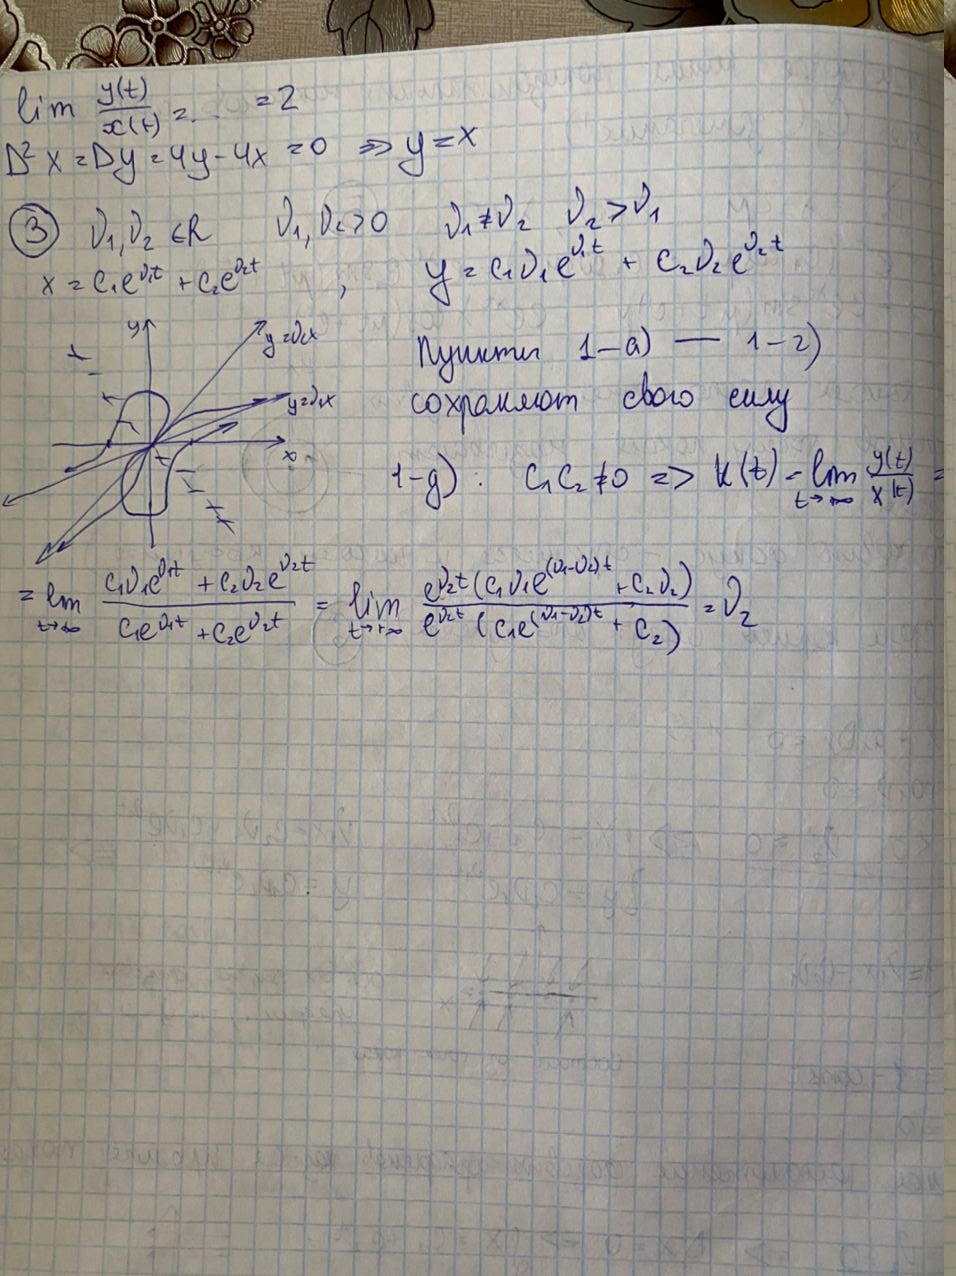 lim y(t)/x(t) = ... = 2
D²x = Dy = 4y - 4x = 0 => y = x
③ ν₁, ν₂ ∈ R ν₁, ν₂ > 0 ν₁ ≠ ν₂ ν₂ > ν₁
x = c₁e^{ν₁t} + c₂e^{ν₂t}, y = c₁ν₁e^{ν₁t} + c₂ν₂e^{ν₂t}
y
y=ν₂x
y=ν₁x
x
Пункты 1-а) — 1-г)
сохраняют свою силу
1-д): c₁c₂ ≠ 0 => k(t) = lim_{t→+∞} y(t)/x(t) =
= lim_{t→+∞} (c₁ν₁e^{ν₁t} + c₂ν₂e^{ν₂t})/(c₁e^{ν₁t} + c₂e^{ν₂t}) = lim_{t→+∞} (e^{ν₂t}(c₁ν₁e^{(ν₁-ν₂)t} + c₂ν₂))/(e^{ν₂t}(c₁e^{(ν₁-ν₂)t} + c₂)) = ν₂